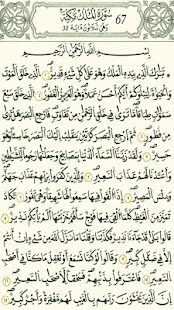 سُورَةُ الْمُلْكِ مَكِّيَّةٌ 67
وَهِيَ ثَلَاثُونَ آيَة 30
بِسْمِ اللَّهِ الرَّحْمَٰنِ الرَّحِيمِ
تَبَارَكَ الَّذِي بِيَدِهِ الْمُلْكُ وَهُوَ عَلَىٰ كُلِّ شَيْءٍ قَدِيرٌ ۝ الَّذِي خَلَقَ الْمَوْتَ
وَالْحَيَاةَ لِيَبْلُوَكُمْ أَيُّكُمْ أَحْسَنُ عَمَلًا وَهُوَ الْعَزِيزُ الْغَفُورُ ۝ الَّذِي خَلَقَ
سَبْعَ سَمَاوَاتٍ طِبَاقًا مَا تَرَىٰ فِي خَلْقِ الرَّحْمَٰنِ مِنْ تَفَاوُتٍ فَارْجِعِ الْبَصَرَ هَلْ تَرَىٰ
مِنْ فُطُورٍ ۝ ثُمَّ ارْجِعِ الْبَصَرَ كَرَّتَيْنِ يَنْقَلِبْ إِلَيْكَ الْبَصَرُ خَاسِئًا وَهُوَ
حَسِيرٌ ۝ وَلَقَدْ زَيَّنَّا السَّمَاءَ الدُّنْيَا بِمَصَابِيحَ وَجَعَلْنَاهَا رُجُومًا لِلشَّيَاطِينِ
وَأَعْتَدْنَا لَهُمْ عَذَابَ السَّعِيرِ ۝ وَلِلَّذِينَ كَفَرُوا بِرَبِّهِمْ عَذَابُ جَهَنَّمَ
وَبِئْسَ الْمَصِيرُ ۝ إِذَا أُلْقُوا فِيهَا سَمِعُوا لَهَا شَهِيقًا وَهِيَ تَفُورُ ۝ تَكَادُ
تَمَيَّزُ مِنَ الْغَيْظِ كُلَّمَا أُلْقِيَ فِيهَا فَوْجٌ سَأَلَهُمْ خَزَنَتُهَا أَلَمْ يَأْتِكُمْ نَذِيرٌ ۝
قَالُوا بَلَىٰ قَدْ جَاءَنَا نَذِيرٌ فَكَذَّبْنَا وَقُلْنَا مَا نَزَّلَ اللَّهُ مِنْ شَيْءٍ إِنْ أَنْتُمْ
إِلَّا فِي ضَلَالٍ كَبِيرٍ ۝ وَقَالُوا لَوْ كُنَّا نَسْمَعُ أَوْ نَعْقِلُ مَا كُنَّا فِي أَصْحَابِ
السَّعِيرِ ۝ فَاعْتَرَفُوا بِذَنْبِهِمْ فَسُحْقًا لِأَصْحَابِ السَّعِيرِ ۝
إِنَّ الَّذِينَ يَخْشَوْنَ رَبَّهُمْ بِالْغَيْبِ لَهُمْ مَغْفِرَةٌ وَأَجْرٌ كَبِيرٌ ۝